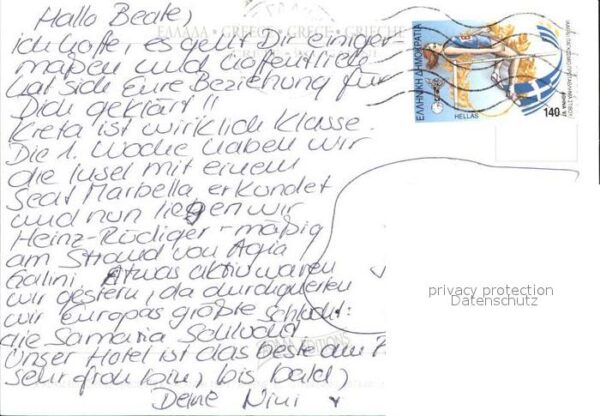 Hallo Beate,
ΕΛΛΑΔΑ - GREECE - GRECE - GRIECHE
ich hoffe es geht Dir einiger-
maßen und hoffentlich
hat sich Eure Beziehung für
Dich geklärt!!
Kreta ist wirklich klasse.
Die 1. Woche haben wir
die Insel mit einem
Seat Marbella erkundet
und nun liegen wir
Heinz-Rüdiger-mäßig
am Strand von Agia
Galini. Etwas aktiv waren
wir gestern, da durchquerten
wir Europas größte Schlucht:
die Samaria Schlucht
Unser Hotel ist das beste am
sehr froh bin, bis bald,
Deine Nini
ΕΛΛΗΝΙΚΗ ΔΗΜΟΚΡΑΤΙΑ
HELLAS
140
privacy protection
Datenschutz